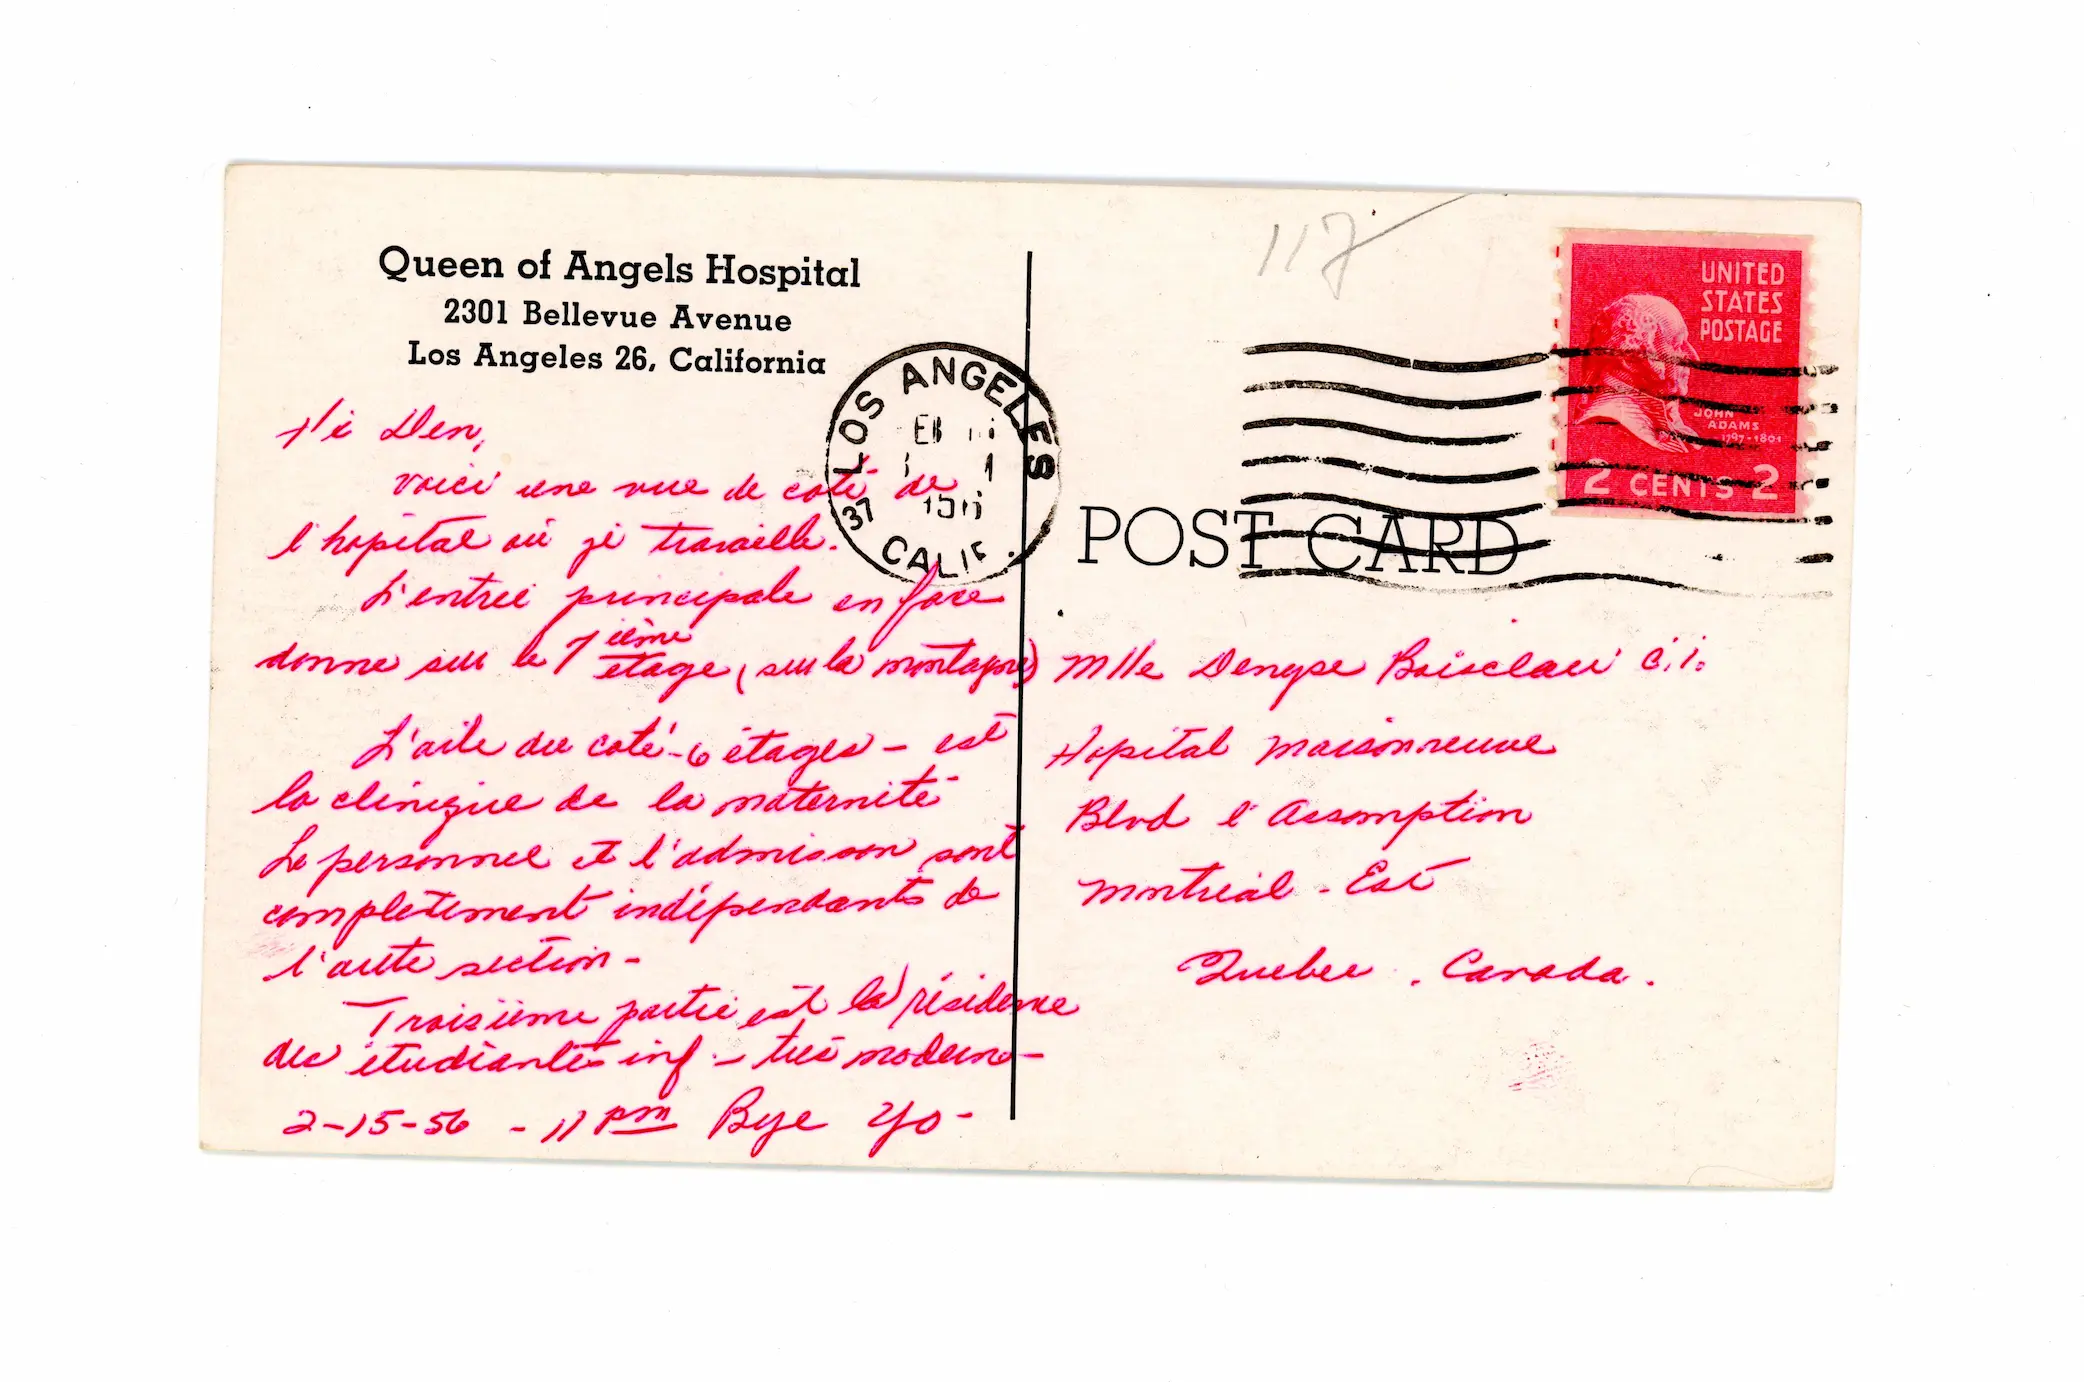 Queen of Angels Hospital
2301 Bellevue Avenue
Los Angeles 26, California
Hi Den,
voici une vue de coté de
l'hopital où je travaille.
L'entrée principale en face
donne sur le 7ième étage, (sur la montagne)
L'aile du coté - 6 étages - est
la clinique de la maternité
Le personnel et l'admission sont
completement indépendants de
l'autre section -
Troisième partie est la résidence
des étudiantes inf - très moderne -
2-15-56 - 11 pm Bye Yo -
LOS ANGELES
37 CALIF.
117
UNITED
STATES
POSTAGE
JOHN
ADAMS
1797-1801
2 CENTS 2
POST CARD
Mlle Denyse Boisclair
Hopital Maisonneuve
Blvd l'Assomption
Montréal - Est
Quebec. Canada.